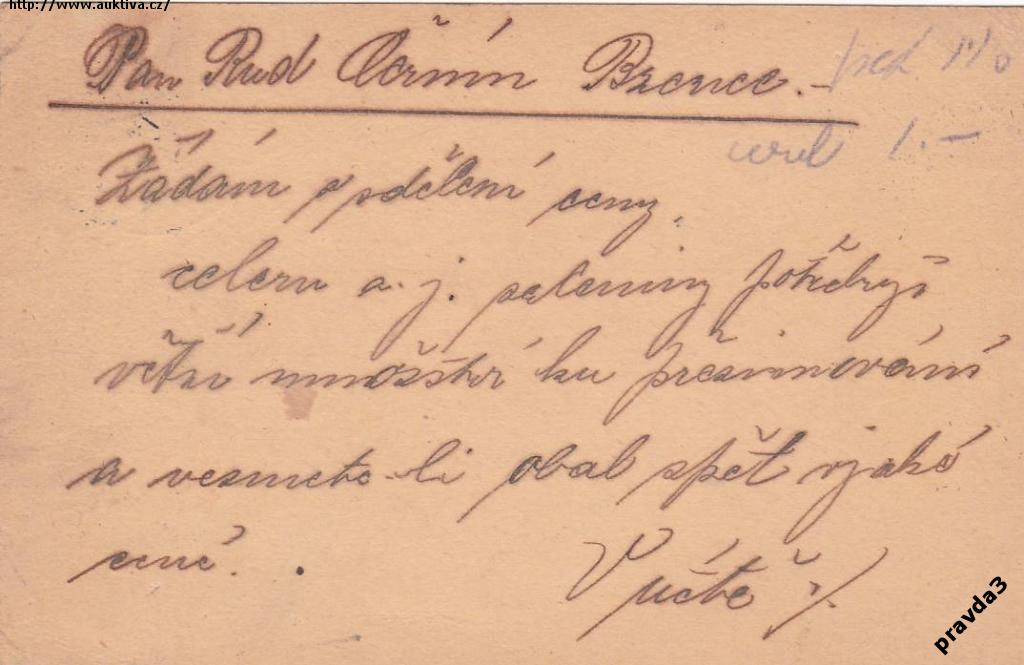 http://www.auktiva.cz/
Pan Rud Čeřín Bzenec.–
Žádám o sdělení ceny
1.–
celeru a. j. zeleniny potřebuji
větší množství ku přezimování
a vezmete-li obal zpět v jaké
ceně.
V úctě ./.
pravda3